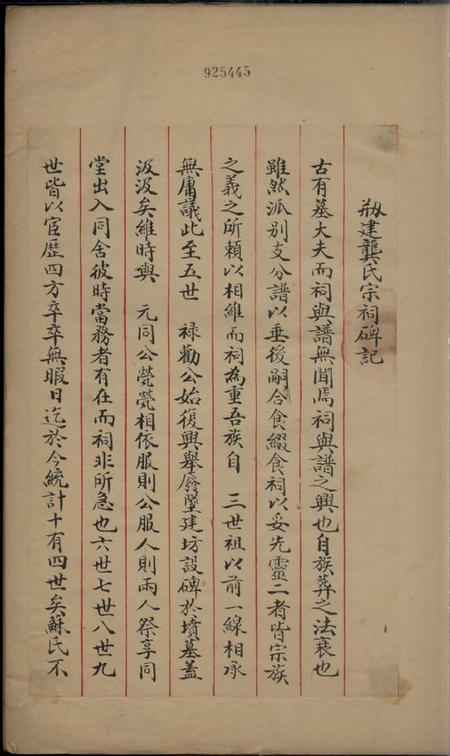 925445
剏建龔氏宗祠碑記
古有墓大夫而祠與譜無聞焉祠與譜之興也自族葬之法衰也
雖然派別支分譜以垂後嗣合食綴食祠以妥先靈二者皆宗族
之義之所賴以相維而祠為重吾族自 三世祖以前一線相承
無庸議此至五世 祿勳公始復興舉廢墜建坊設碑於墳墓蓋
汲汲矣維時與 元同公煢煢相依服則公服人則兩人祭享同
堂出入同舍彼時當務者有在而祠非所急也六世七世八世九
世皆以宦歷四方卒卒無暇日迄於今統計十有四世矣蘇氏不